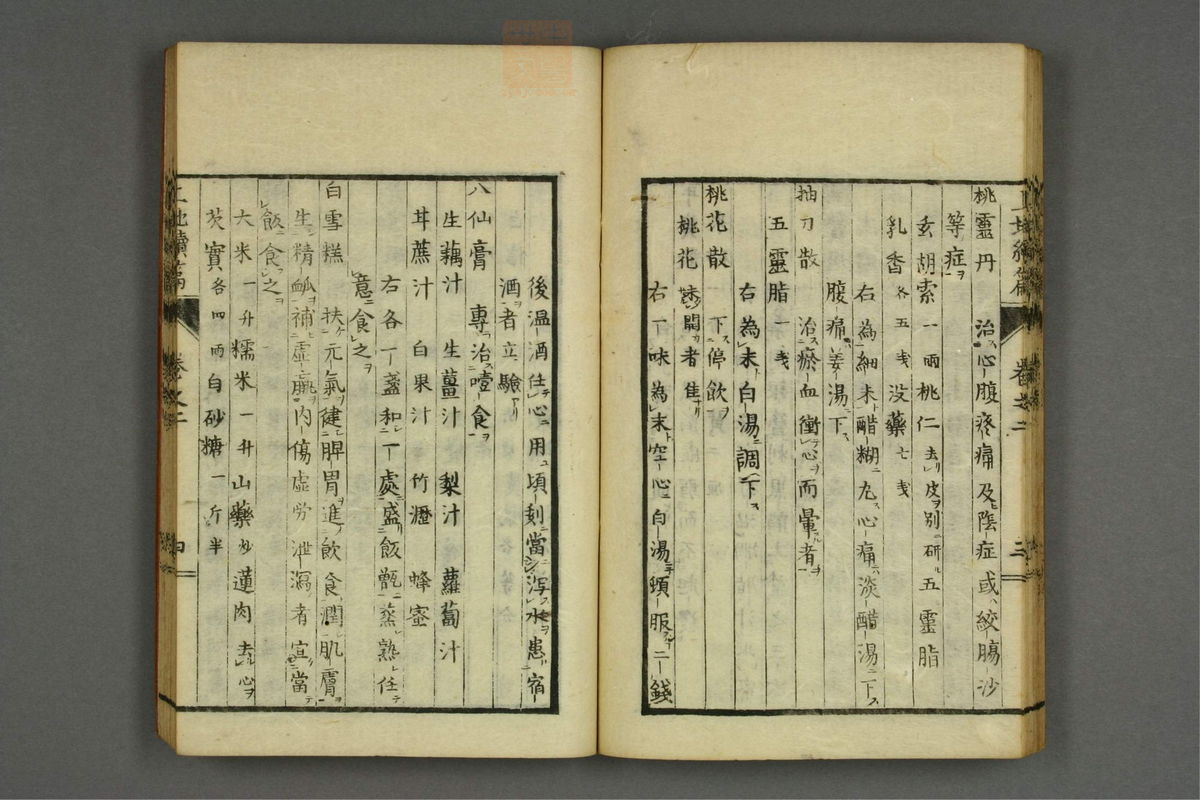 桃靈丹 治心腹疼痛及陰症或絞腸沙
等症
玄胡索一兩 桃仁去皮別研 五靈脂
乳香各五戋 没藥七戋
右為細末醋糊丸心痛淡醋湯下
腹痛姜湯下
抽刀散 治瘀血衝心而暈者
五靈脂一戋
右為末白湯調下
桃花散 下停飲
桃花 開者佳
右一味為末空心白湯頓服二錢
後温酒任心用頃刻當瀉水患宿
酒者立驗
八仙膏 專治噎食
生藕汁 生薑汁 梨汁 蘿蔔汁
甘蔗汁 白果汁 竹瀝 蜂蜜
右各一盞和一處盛飯甑蒸熟任
意食之
白雪糕 扶元氣健脾胃進飲食潤肌膚
生精衇補虛羸內傷虛労泄瀉者宜當
飯食之
大米一升 糯米一升 山藥炒 蓮肉去心
芡實各四兩 白砂糖一斤半
卷之二 三
卷之二 四